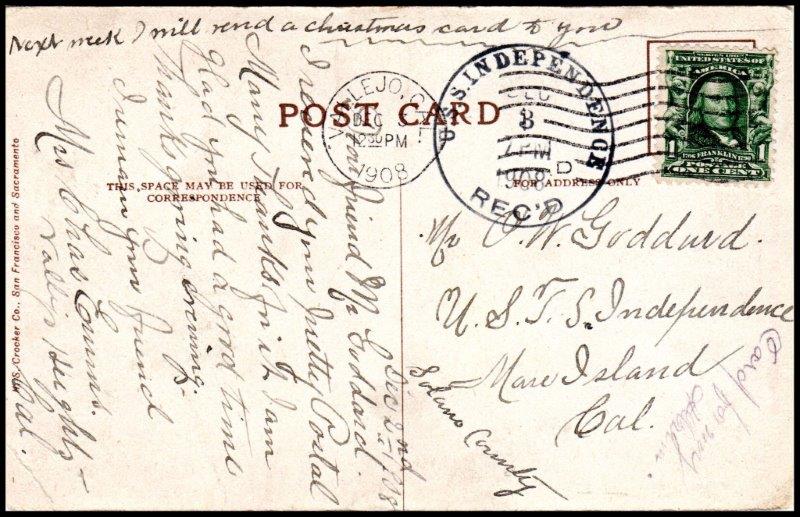 Next week I will send a christmas card to you
POST CARD
THIS SPACE MAY BE USED FOR
CORRESPONDENCE
FOR ADDRESS ONLY
VALLEJO, CAL.
DEC 3
12 30 PM
1908
U.S.S. INDEPENDENCE
DEC
3
7 PM
1908
REC'D
UNITED STATES OF
1706 FRANKLIN 1790
POSTAGE
1 1
ONE CENT
Dec 2nd 1908
Friend Mr Goddard.
I recieved your Pretty Postal
Many Thanks for it. I am
glad you had a good time
Thanksgiving evening.
I remain your friend
Mrs Chas Emmis.
Vallejo Heights
Cal.
Mr O. W. Goddard.
U.S.T.S. Independence
Mare Island
Cal.
Solano County
Card
Crocker Co., San Francisco and Sacramento